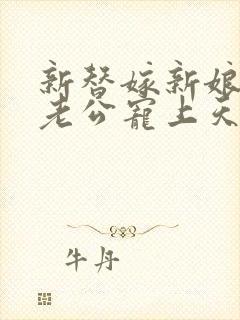 新替嫁新娘
老公宠上天
牛丹